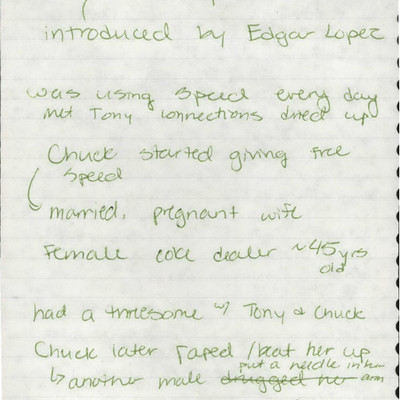 introduced by Edgar Lopez
was using speed every day
met Tony connections dried up
Chuck started giving free
speed
married, pregnant wife
Female coke dealer ~45yrs
old
had a threesome w/ Tony & Chuck
Chuck later raped/beat her up
put a needle in her
another male drugged her arm